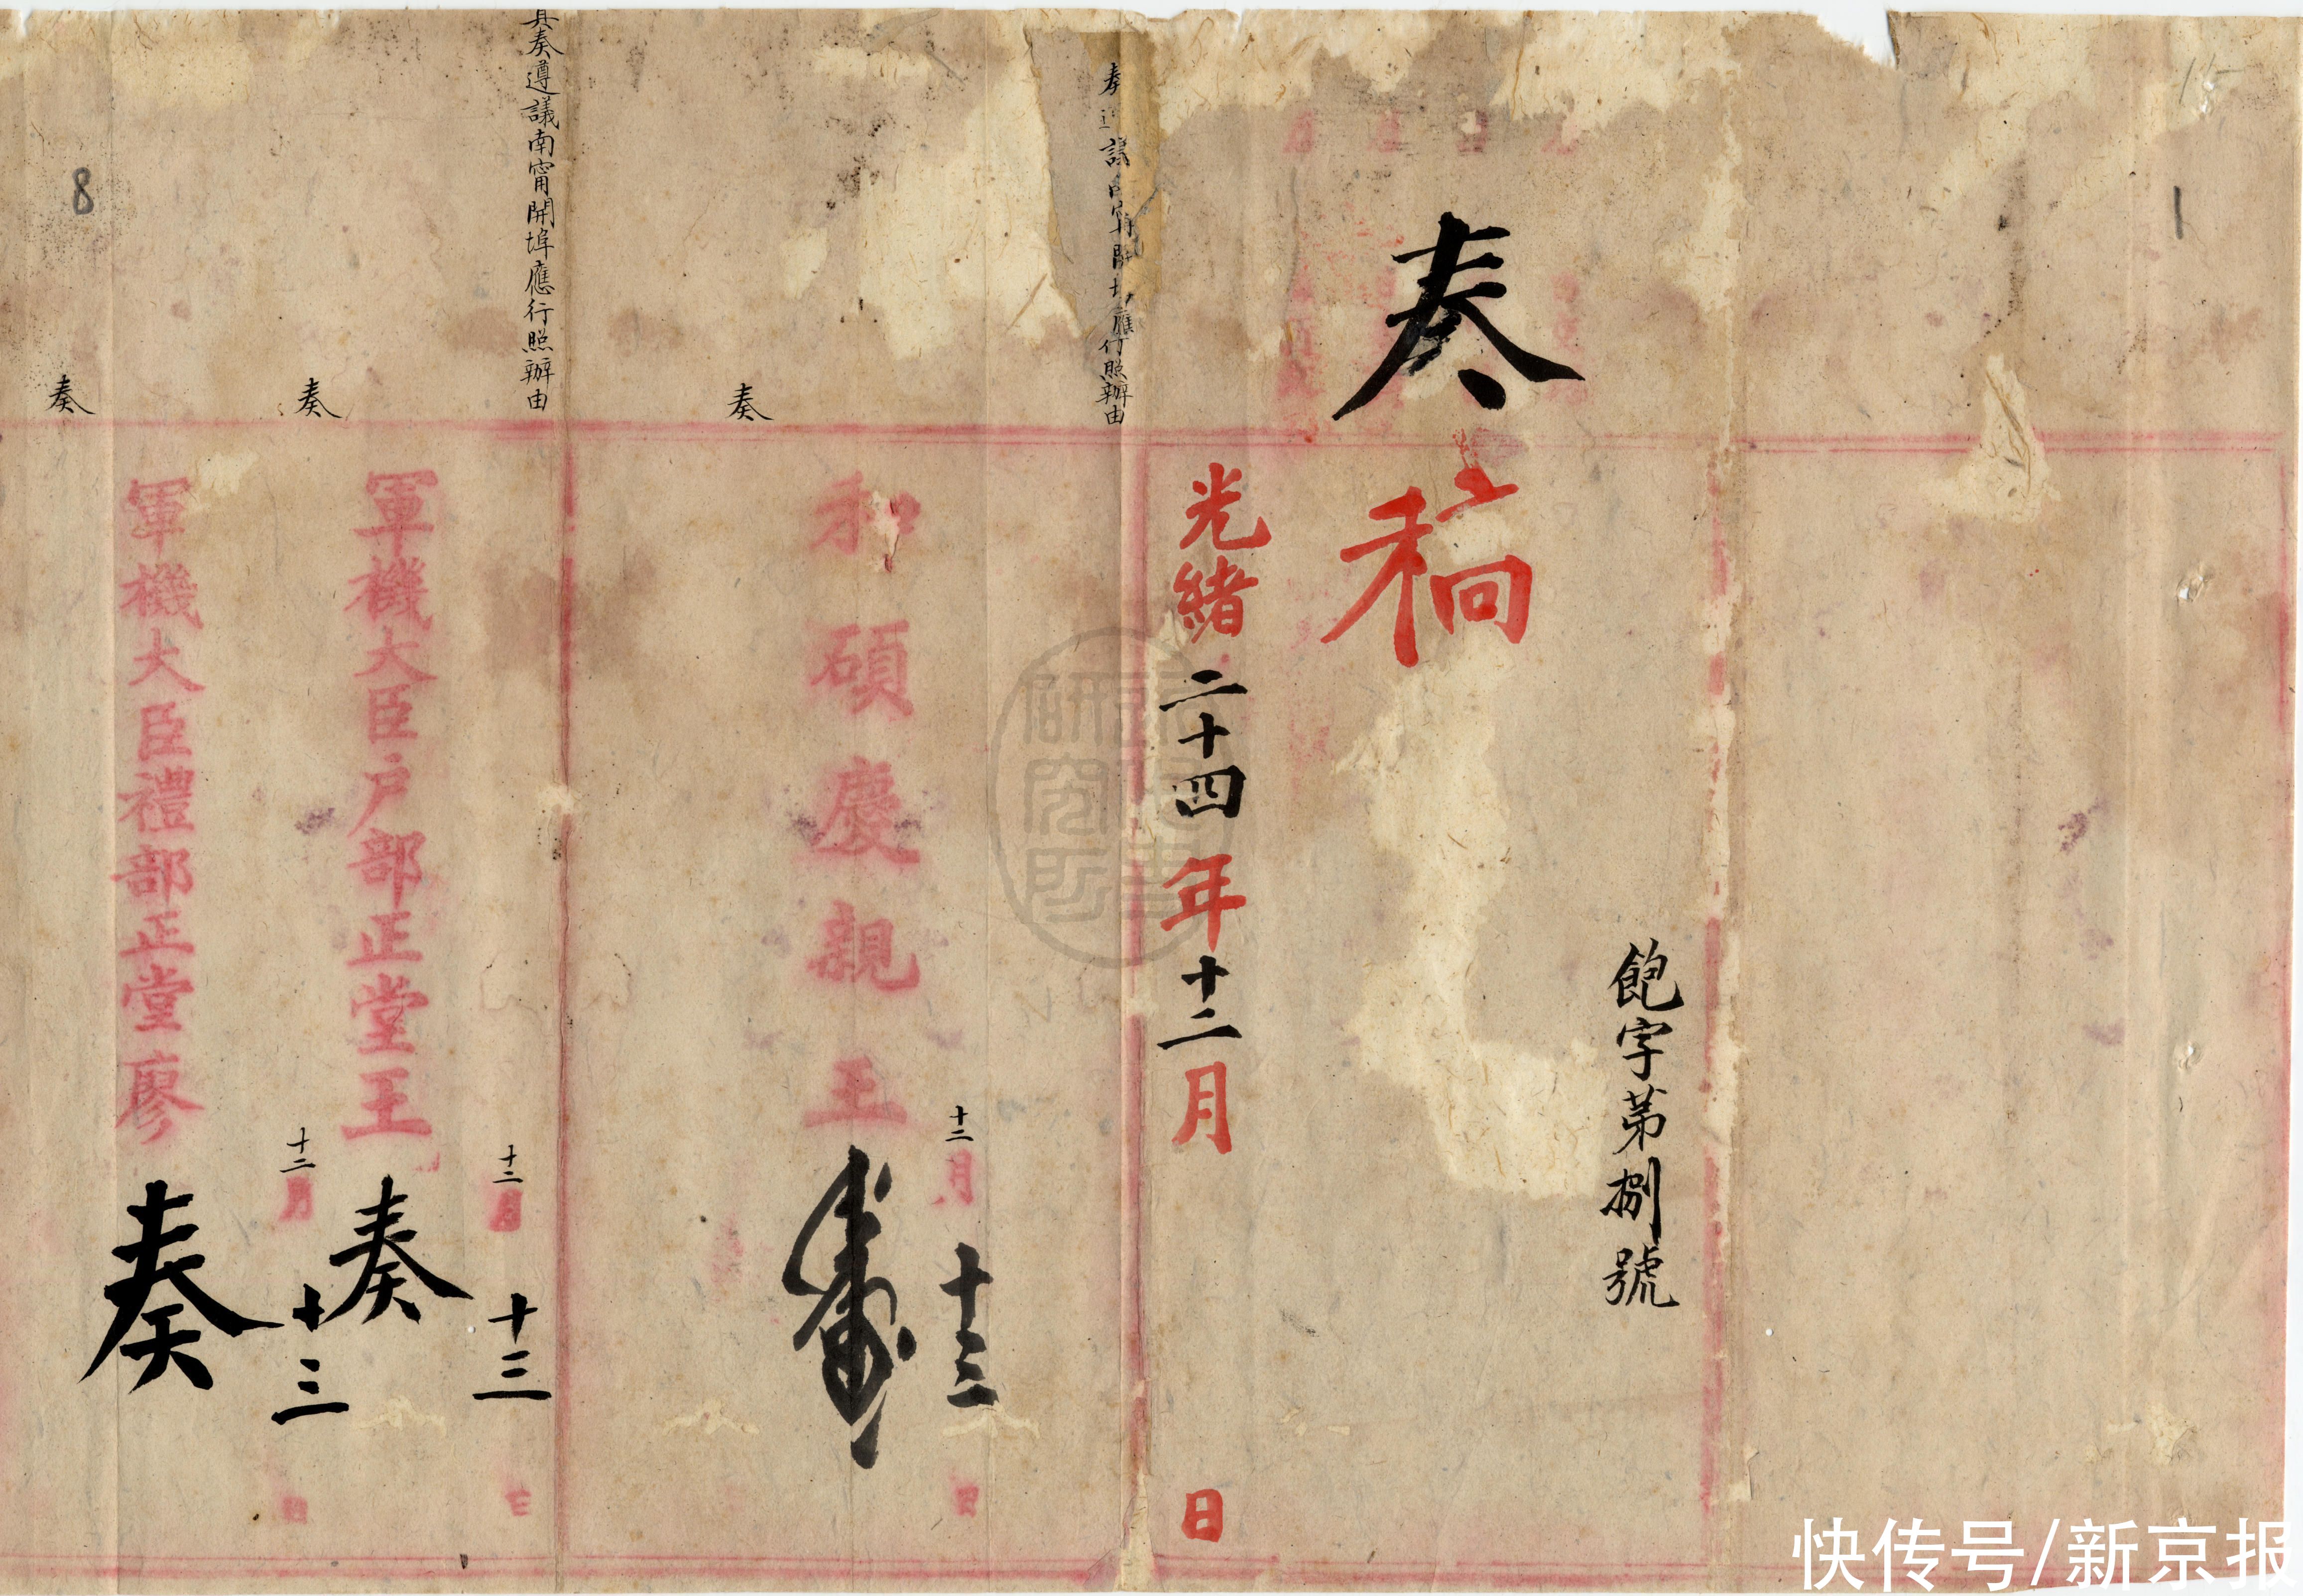 1
飽字第捌號
奏稿
光緒二十四年十二月 日
奏 議 開 應行照辦由
十二月十三日
和碩慶親王
奏
具奏遵議南甯開埠應行照辦由
十二月十三日
奏
軍機大臣戶部正堂王 奏
十二月十三日
奏
軍機大臣禮部正堂廖 奏
8
研究所
快传号/新京报